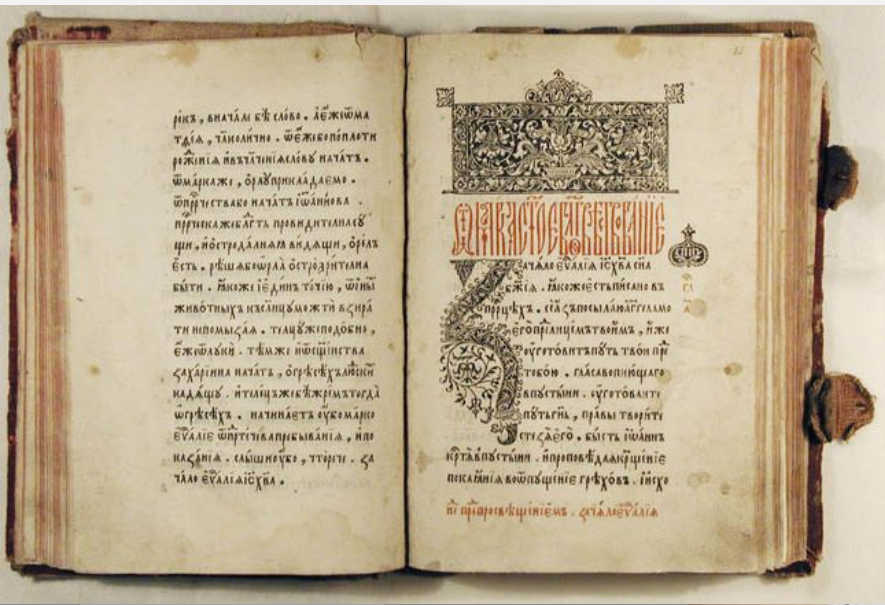 рікъ, вначалѣ бѣ слово. аеже ѿ ма
тѳіа, чл҃колично. ѿ еже бо по плоти
рожⷣенїѧ и въчл҃ченїѧ слову начатъ.
ѿ марка же, орлу прикладаемо.
ѿ прⷪ҇рчества бо начатъ іѡаннова.
прⷪ҇рческа же бл҃гть провидителна су
щи, и острѣ далнѧѧ видѧщи, орелъ
есть. рѣша бо орла острозрителна
быти. ꙗкоже і единъ точїю, ѿ ины
животныхъ къ слн҃цу можⷮти взира
ти не помыз̾аѧ. телцу же подобно,
еже ѿ луки. тѣмже и ѿ сщ҃енства
захарїина начатъ, о грѣсѣхъ людски
кадѧщу. и телецъ же бѣ жремъ тогда
ѿ грѣсѣхъ. начинаетъ оубо марко
еѵⷢ҇лїе ѿ прⷣтечева пребыванїѧ, и по
казанїѧ. слыши оубо, что рече. за
чало еѵⷢ҇лїѧ іс҃ хв҃а.
ѿ марка ст҃ое бл҃говѣствованїе
Зачѧло еѵⷢ҇лїѧ іс҃ хв҃а сн҃а
бж҃їѧ. ꙗкоже есть писано въ
прⷪ҇рцѣхъ. се азъ посылаю аг҃гела мо
его прⷣе лицемъ твоимъ, иже
оуготовитъ путь твои прⷣе
тобою. гласъ вопиющаго
в пустыни. оуготоваите
путь гн҃ь, правы творите
стезѧ его. бысть іѡаннъ
крⷭ҇тѧ в пустыни. и проповѣдаѧ крⷳ҇щенїе
покаѧнїѧ во ѿпущенїе грѣховъ. и исхо
нⷣе прⷣе просвѣщенїемъ. зачѧло еѵⷢ҇лїѧ